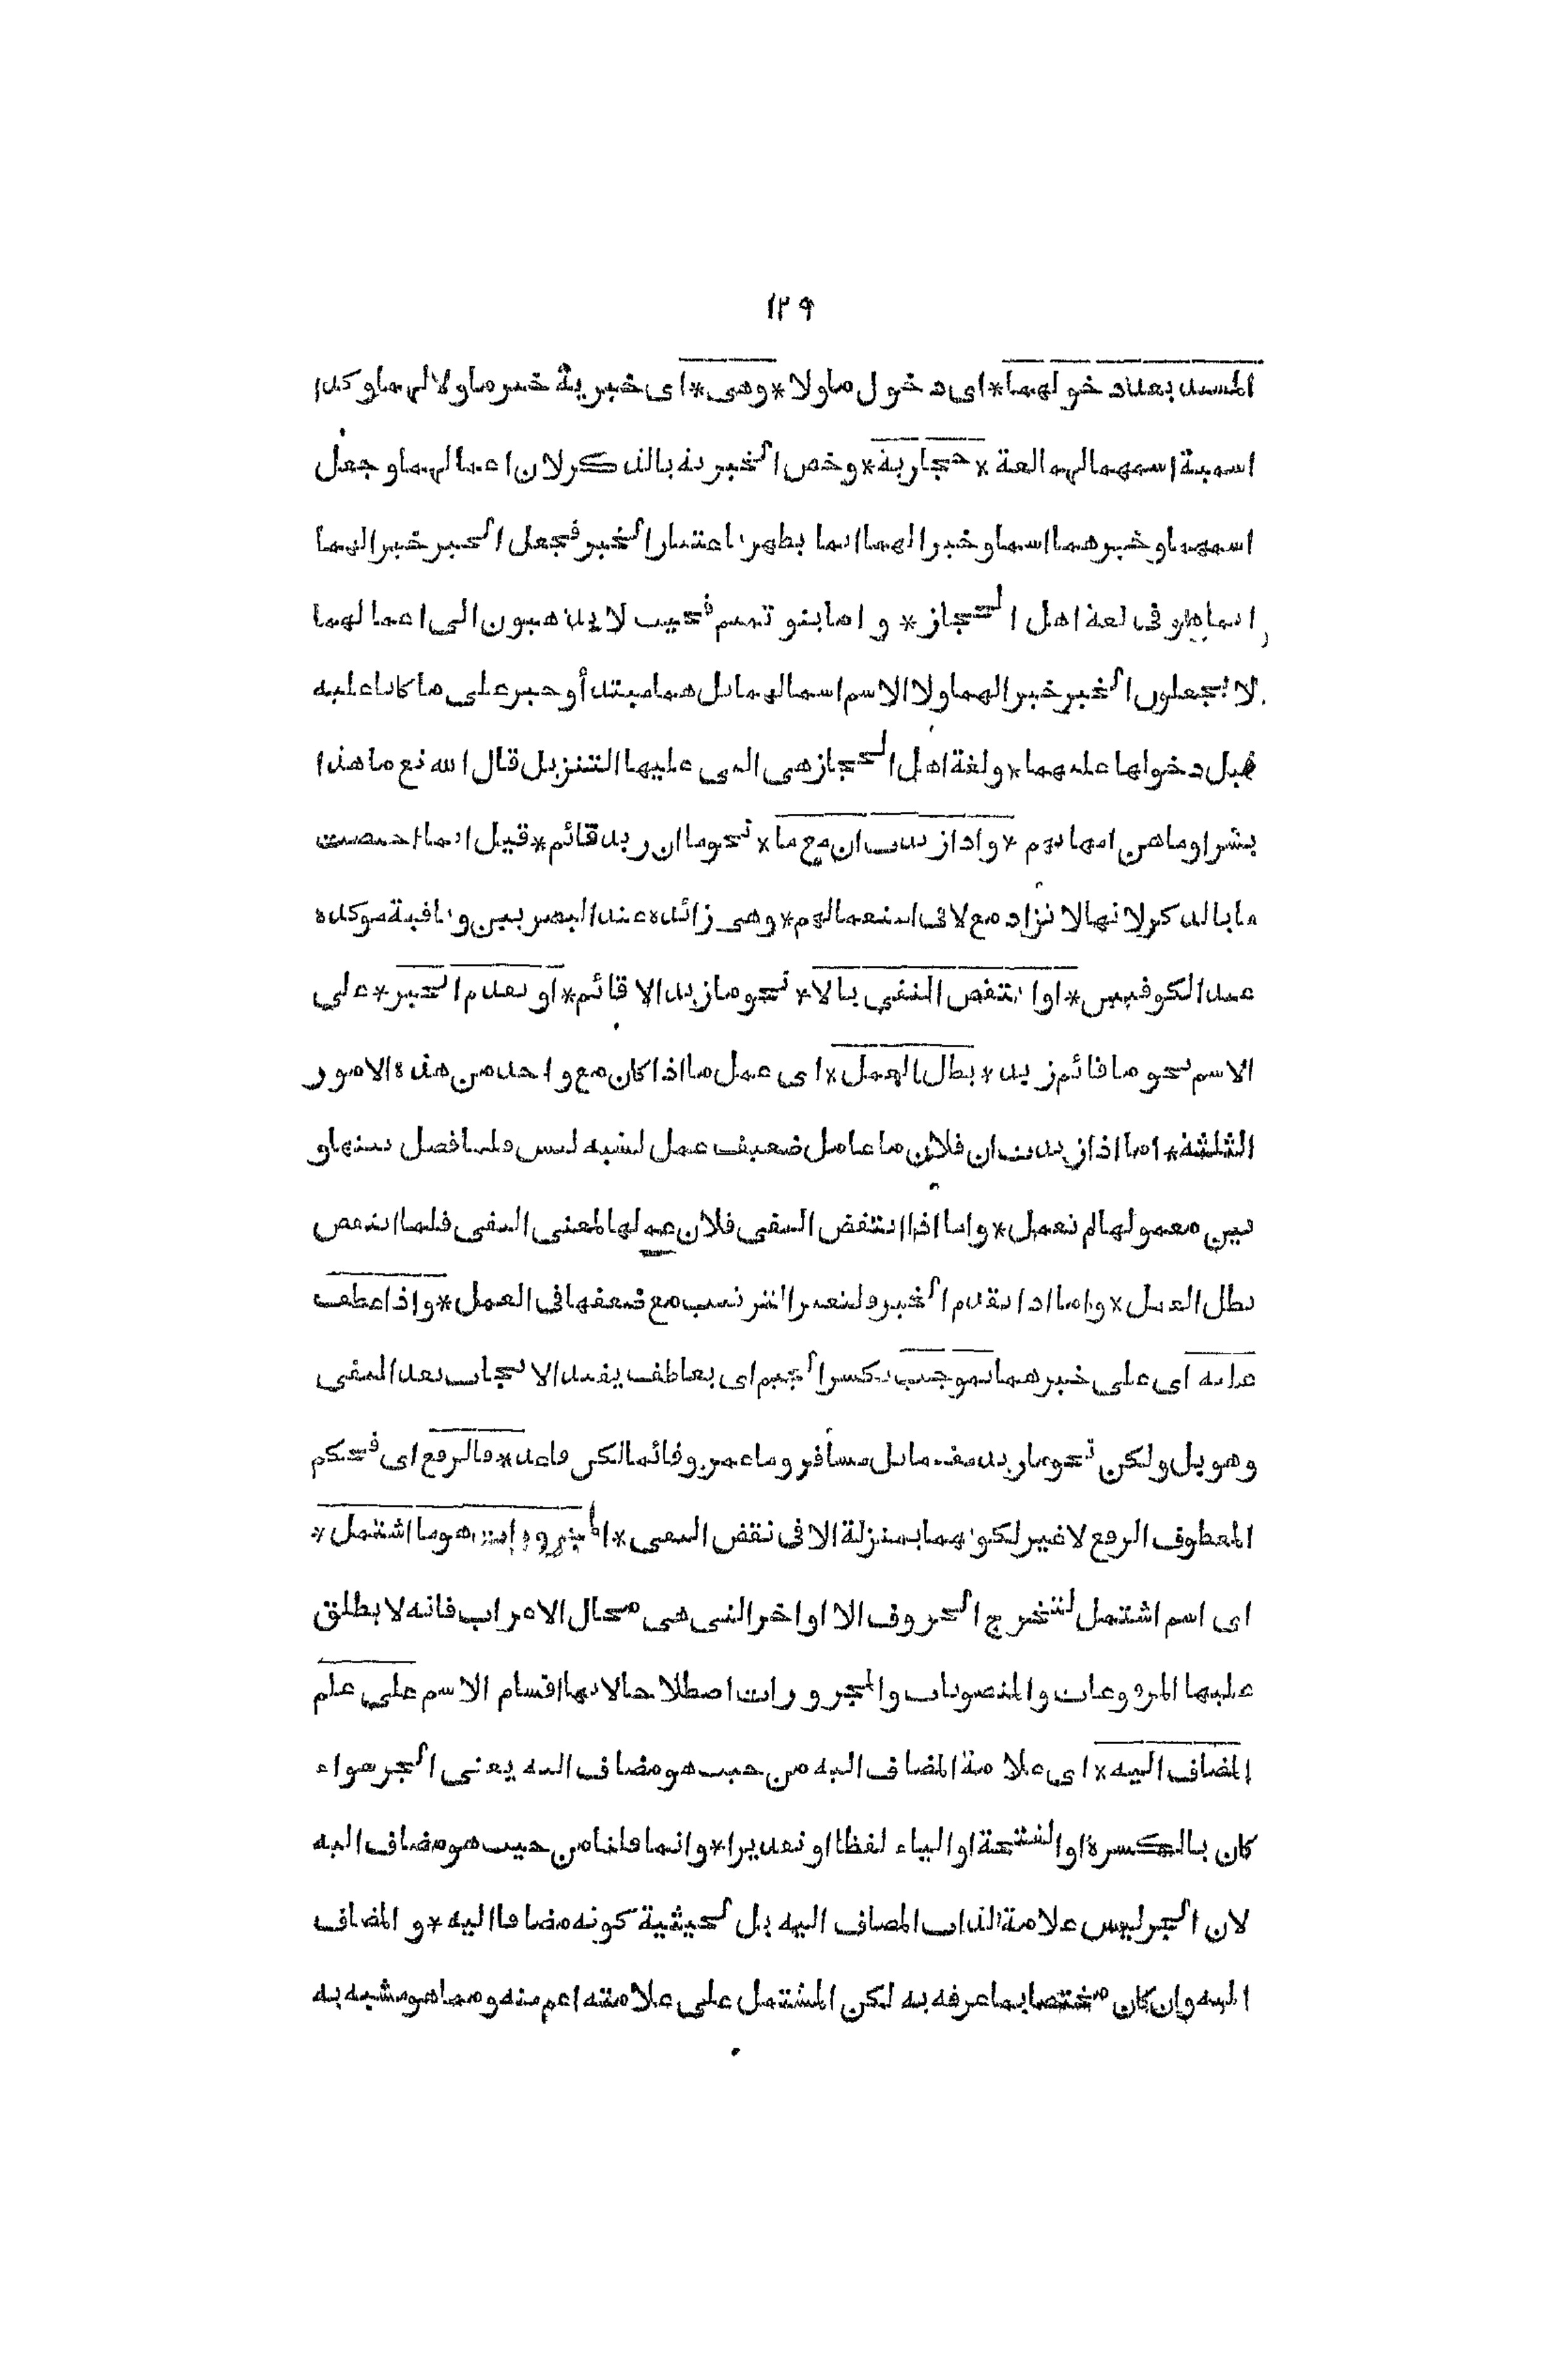 ١٢٩
المسند بعد دخولهما * اى دخول ما ولا * وهى * اى خبرية خبر ما ولا لهما وكذا
اسمية اسمهما لهما لغة * حجازية * وخص الخبرية بالذكر لان اعمالهما وجعل
اسمهما وخبرهما اسما وخبرا لهما انما يظهر باعتبار الخبر فجعل الخبر خبرا لهما
انما هو فى لغة اهل الحجاز * و اما بنو تميم فحيث لا يذهبون الى اعمالهما
لا يجعلون الخبر خبرا لهما ولا الاسم اسما لهما بل هما مبتدأ وخبر على ما كانا عليه
قبل دخولها عليهما * ولغة اهل الحجاز هى التى عليها التنزيل قال الله تع ما هذا
بشرا وما هن امهاتهم * واذا زيدت ان مع ما * نحو ما ان زيد قائم * قيل انما اختصت
ما بالذكر لانها لا تزاد مع لا فى استعمالهم * وهى زائدة عند البصريين ونافية موكدة
عند الكوفيين * او انتقض النفى بالا * نحو ما زيد الا قائم * او تقدم الخبر * على
الاسم نحو ما قائم زيد * بطل العمل * اى عمل ما اذا كان مع واحد من هذه الامور
الثلثة * اما اذا زيدت ان فلان ما عامل ضعيف عمل لشبه ليس فلما فصل بينها و
بين معمولها لم تعمل * واما اذا انتقض النفى فلان عملها لمعنى النفى فلما انتقض
بطل العمل * واما اذا تقدم الخبر فلتغير الترتيب مع ضعفها فى العمل * واذا عطف
عليه اى على خبرهما بموجب بكسر الجيم اى بعاطف يفيد الايجاب بعد النفى
وهو بل ولكن نحو ما زيد مقيما بل مسافر وما عمرو قائما لكن قاعد * فالرفع اى فحكم
المعطوف الرفع لا غير لكونهما بمنزلة الا فى نقض النفى * المجرورات هو ما اشتمل *
اى اسم اشتمل لتخرج الحروف الاواخر التى هى محال الاعراب فانه لا يطلق
عليها المرفوعات والمنصوبات والمجرورات اصطلاحا لانها اقسام الاسم على علم
المضاف اليه * اى علامة المضاف اليه من حيث هو مضاف اليه يعنى الجر سواء
كان بالكسرة او الفتحة او الياء لفظا او تقديرا * وانما قلنا من حيث هو مضاف اليه
لان الجر ليس علامة لذات المضاف اليه بل لحيثية كونه مضافا اليه * و المضاف
اليه وان كان مختصا بما عرفه به لكن المشتمل على علامته اعم منه ومما هو مشبه به